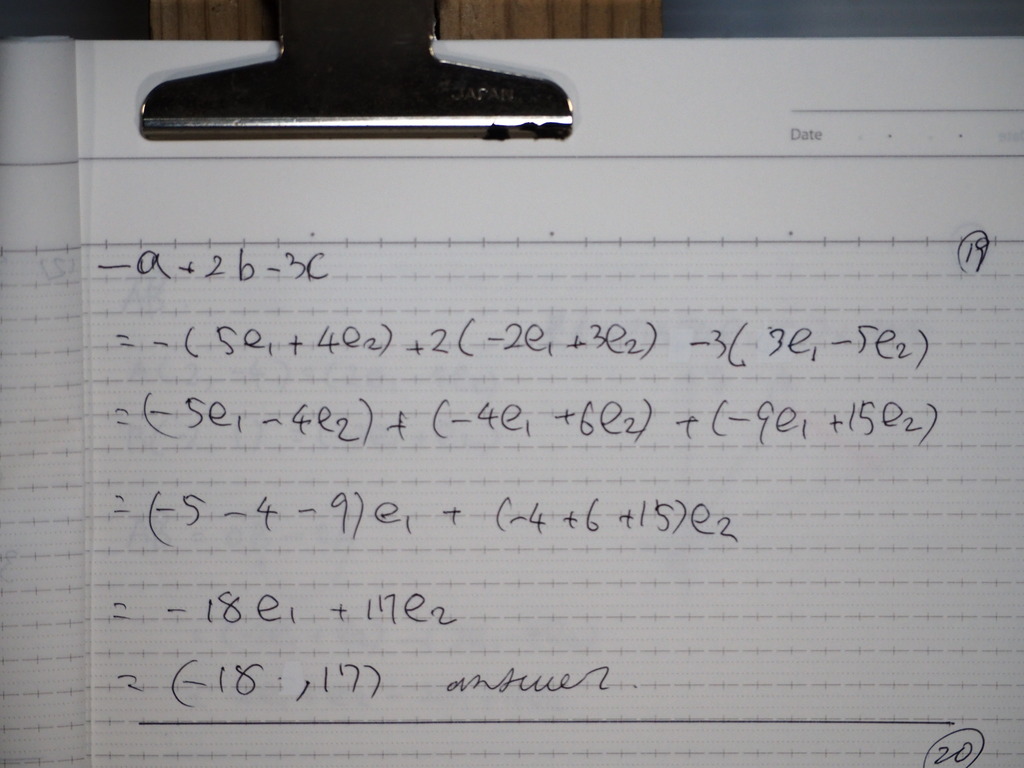 JAPAN
Date
⑲
-a+2b-3c
= -(5e₁+4e₂)+2(-2e₁+3e₂) -3(3e₁-5e₂)
=(-5e₁-4e₂)+(-4e₁+6e₂)+(-9e₁+15e₂)
=(-5-4-9)e₁ + (-4+6+15)e₂
= -18e₁ +17e₂
= (-18 ,17) answer.
⑳